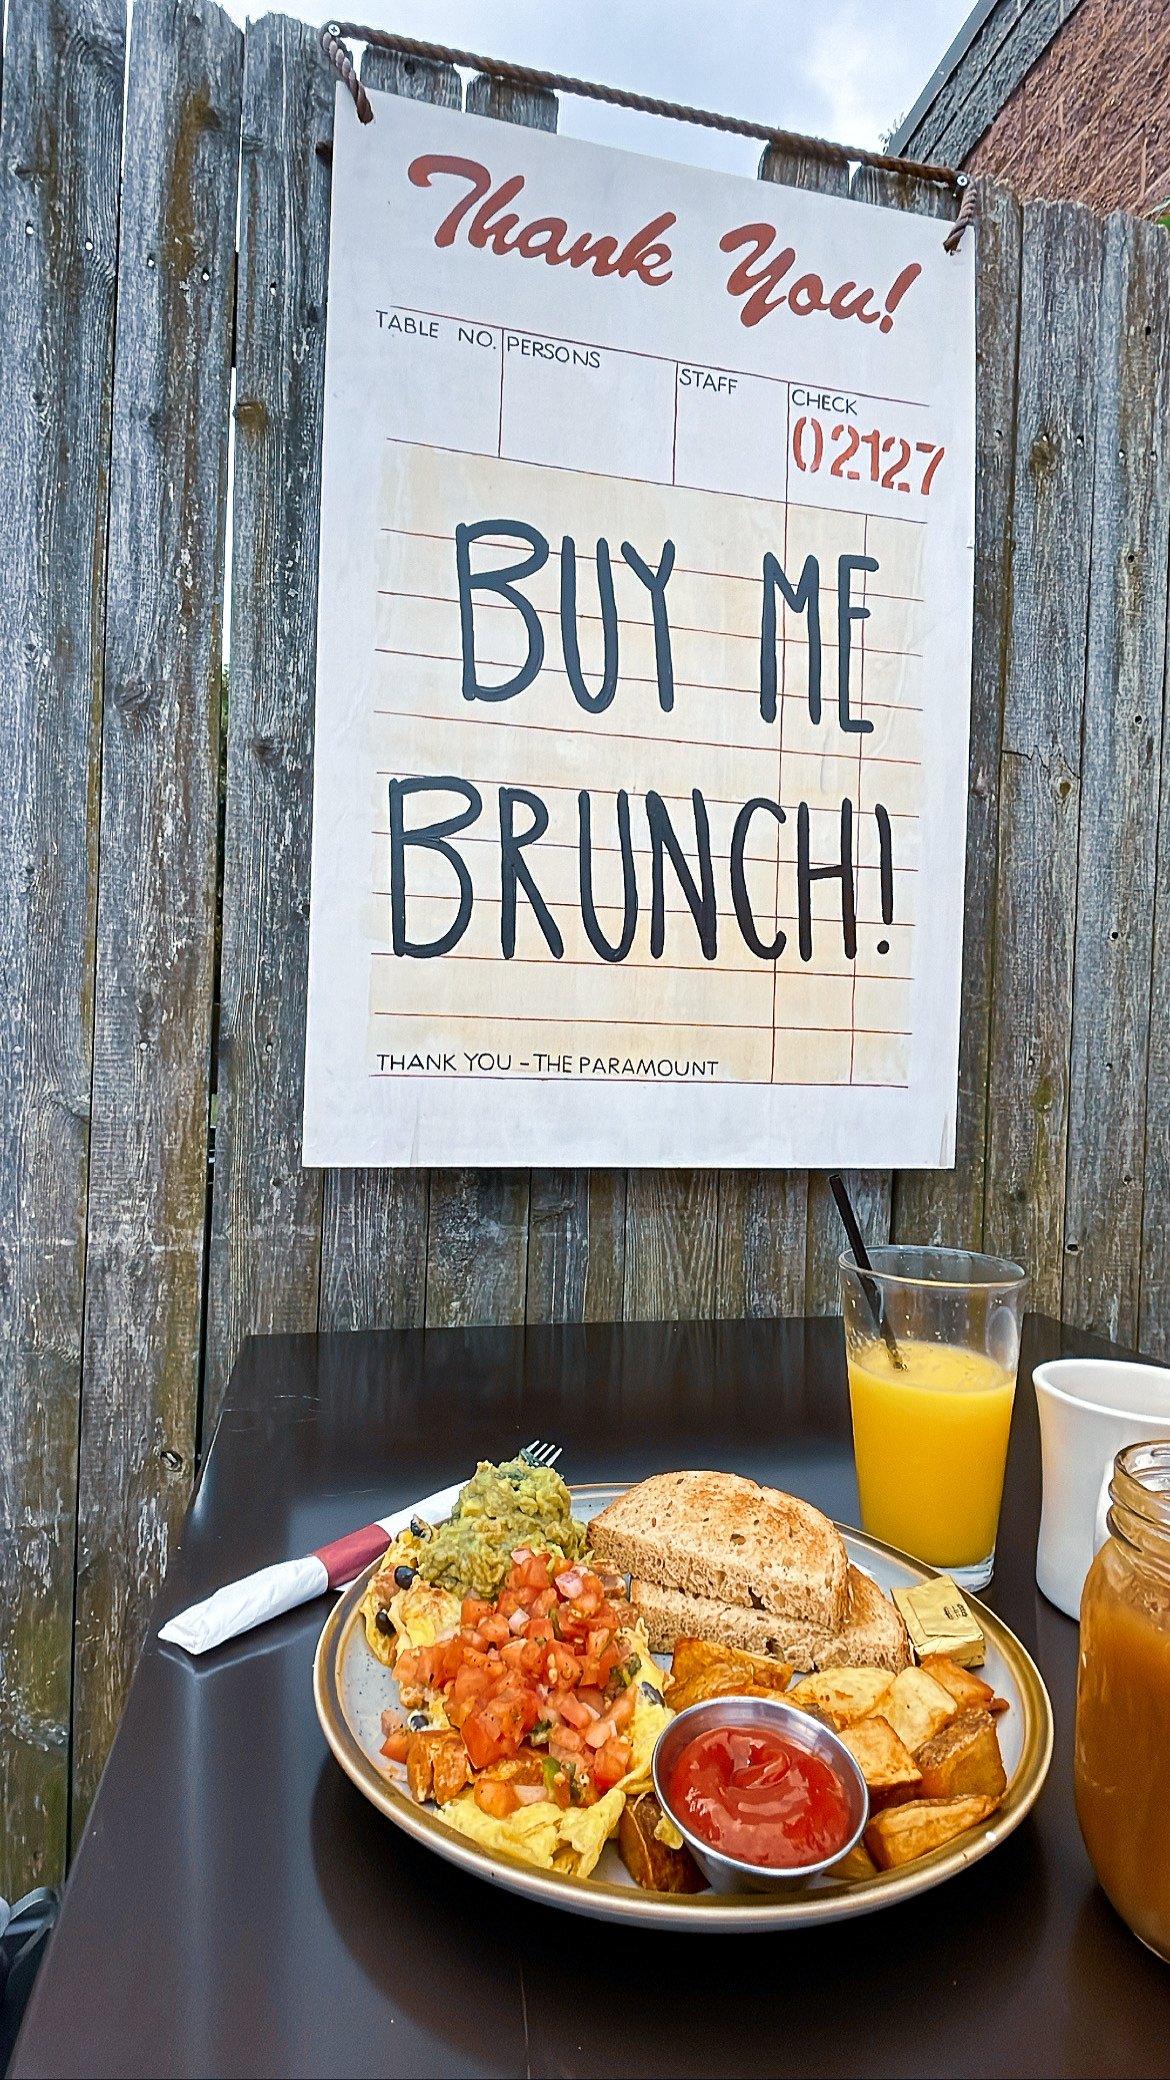 Thank You!
TABLE NO. PERSONS STAFF CHECK
02127
BUY ME
BRUNCH!
THANK YOU - THE PARAMOUNT